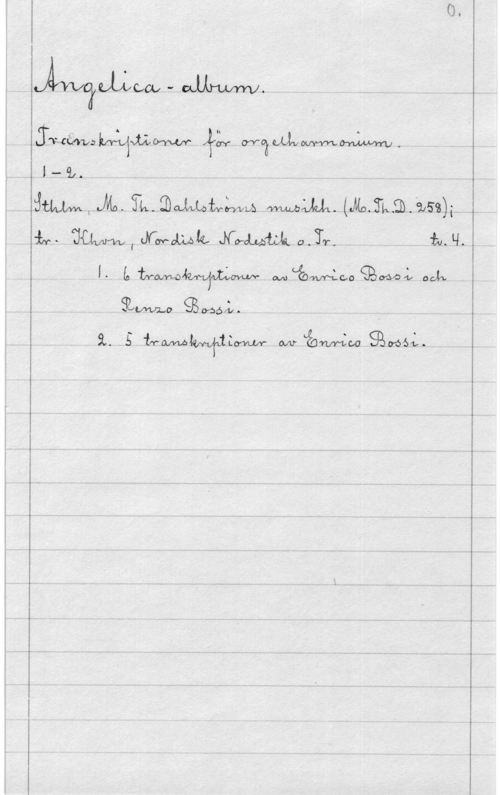 O.
Angelica - album.
Transkriptioner för orgelharmonium.
1-2.
Sthlm, M. Th. Dahlströms musikh. (M.Th.D. 258);
tr. Khvn, Nordisk Nodestik o. Tr. tv. 4.
1. 6 transkriptioner av Enrico Bossi och
Renzo Bossi.
2. 5 transkriptioner av Enrico Bossi.